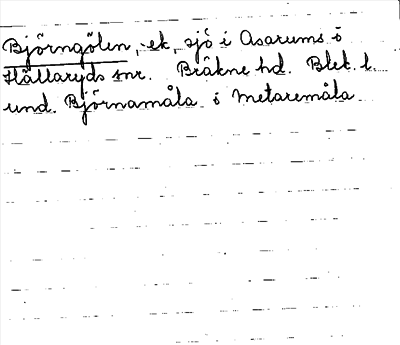 Björngölen, ek, sjö i Asarums o
Hällaryds snr. Bräkne hd. Blek. l.
und. Björnamåla o Metaremåla